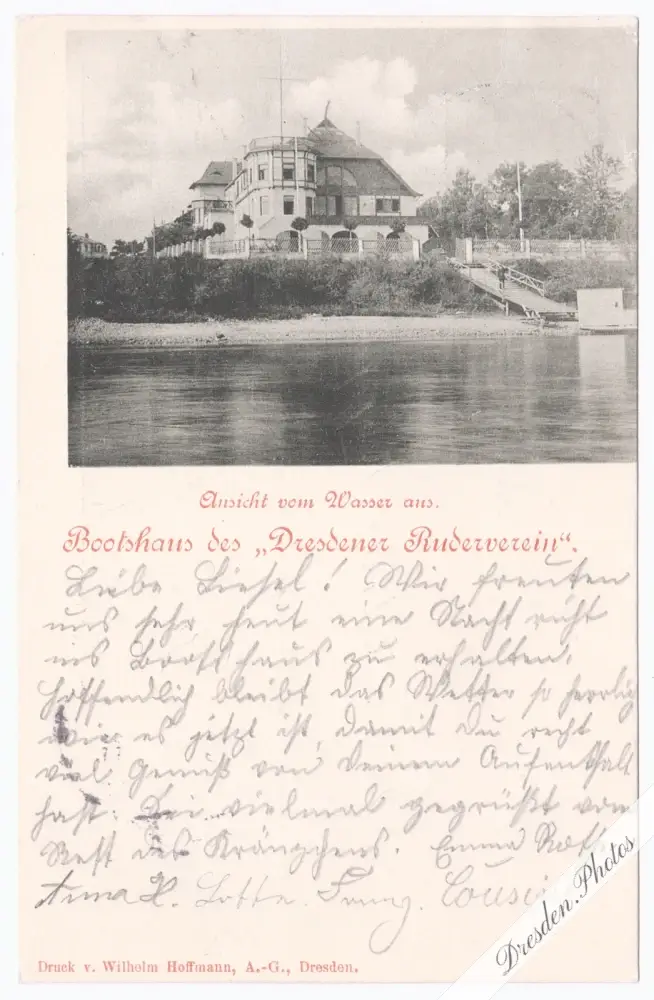 Ansicht vom Wasser aus.
Bootshaus des „Dresdener Ruderverein“.
Liebe Liesel! Wir freuten
uns sehr heut eine Nacht
ins Bootshaus zu erhalten.
Hoffendlich bleibt das Wetter so herrlig
wie es jetzt ist, damit Du recht
viel Genuß von Deinem Aufenthalt
hast. Sei vielmal gegrüßt vom
Rest des Kränzchens. Emma
Anna H. Lotte. Franz. Cousi
Druck v. Wilhelm Hoffmann, A.-G., Dresden.
Dresden.Photos